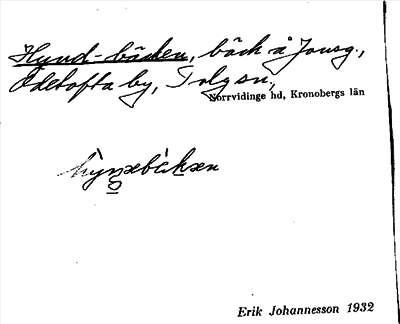 Hund-bäcken, bäck å Jonsg.,
Odetofta by, Tolg sn,
Norrvidinge hd, Kronobergs län
Erik Johannesson 1932